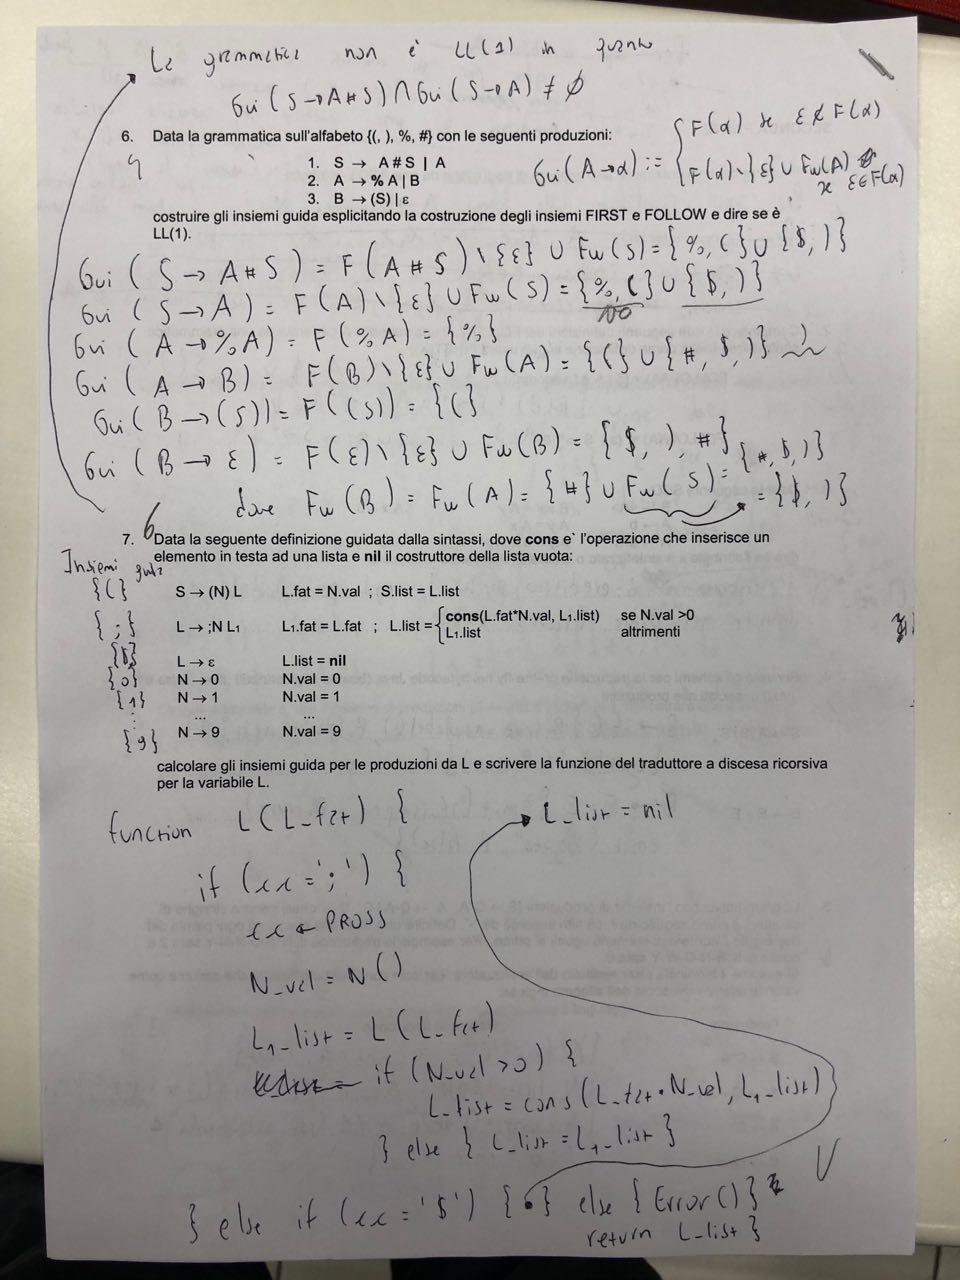 La grammatica non è LL(1) in quanto
Gui(S→A#S) ∩ Gui(S→A) ≠ ∅
6. Data la grammatica sull'alfabeto {(, ), %, #} con le seguenti produzioni:
1. S → A # S | A
2. A → % A | B
3. B → (S) | ε
Gui(A→α) := { F(α) se ε ∉ F(α)
F(α)\{ε} ∪ Fw(A) se ε∈F(α)
costruire gli insiemi guida esplicitando la costruzione degli insiemi FIRST e FOLLOW e dire se è
LL(1).
Gui(S → A # S) = F(A # S)\{ε} ∪ Fw(S) = {%, (} ∪ {$, )}
Gui(S → A) = F(A)\{ε} ∪ Fw(S) = {%, (} ∪ {$, )}
NO
Gui(A → %A) = F(%A) = {%}
Gui(A → B) = F(B)\{ε} ∪ Fw(A) = {(} ∪ {#, $, )}
Gui(B → (S)) = F((S)) = {(}
Gui(B → ε) = F(ε)\{ε} ∪ Fw(B) = {$, ), #}
dove Fw(B) = Fw(A) = {#} ∪ Fw(S) = {#, $, )}
= {$, )}
7. Data la seguente definizione guidata dalla sintassi, dove cons e` l'operazione che inserisce un
elemento in testa ad una lista e nil il costruttore della lista vuota:
Insiemi guida
{(} S → (N) L L.fat = N.val ; S.list = L.list
{;} L → ;N L1 L1.fat = L.fat ; L.list = { cons(L.fat*N.val, L1.list) se N.val >0
L1.list altrimenti
{$} L → ε L.list = nil
{0} N → 0 N.val = 0
{1} N → 1 N.val = 1
... ...
{9} N → 9 N.val = 9
calcolare gli insiemi guida per le produzioni da L e scrivere la funzione del traduttore a discesa ricorsiva
per la variabile L.
function L(L_fat) {
L_list = nil
if (cc = ';') {
cc ← PROSS
N_val = N()
L1_list = L(L_fat)
if (N_val > 0) {
L_list = cons(L_fat * N_val, L1_list)
} else { L_list = L1_list }
} else if (cc = '$') { } else { Error() }
return L_list }